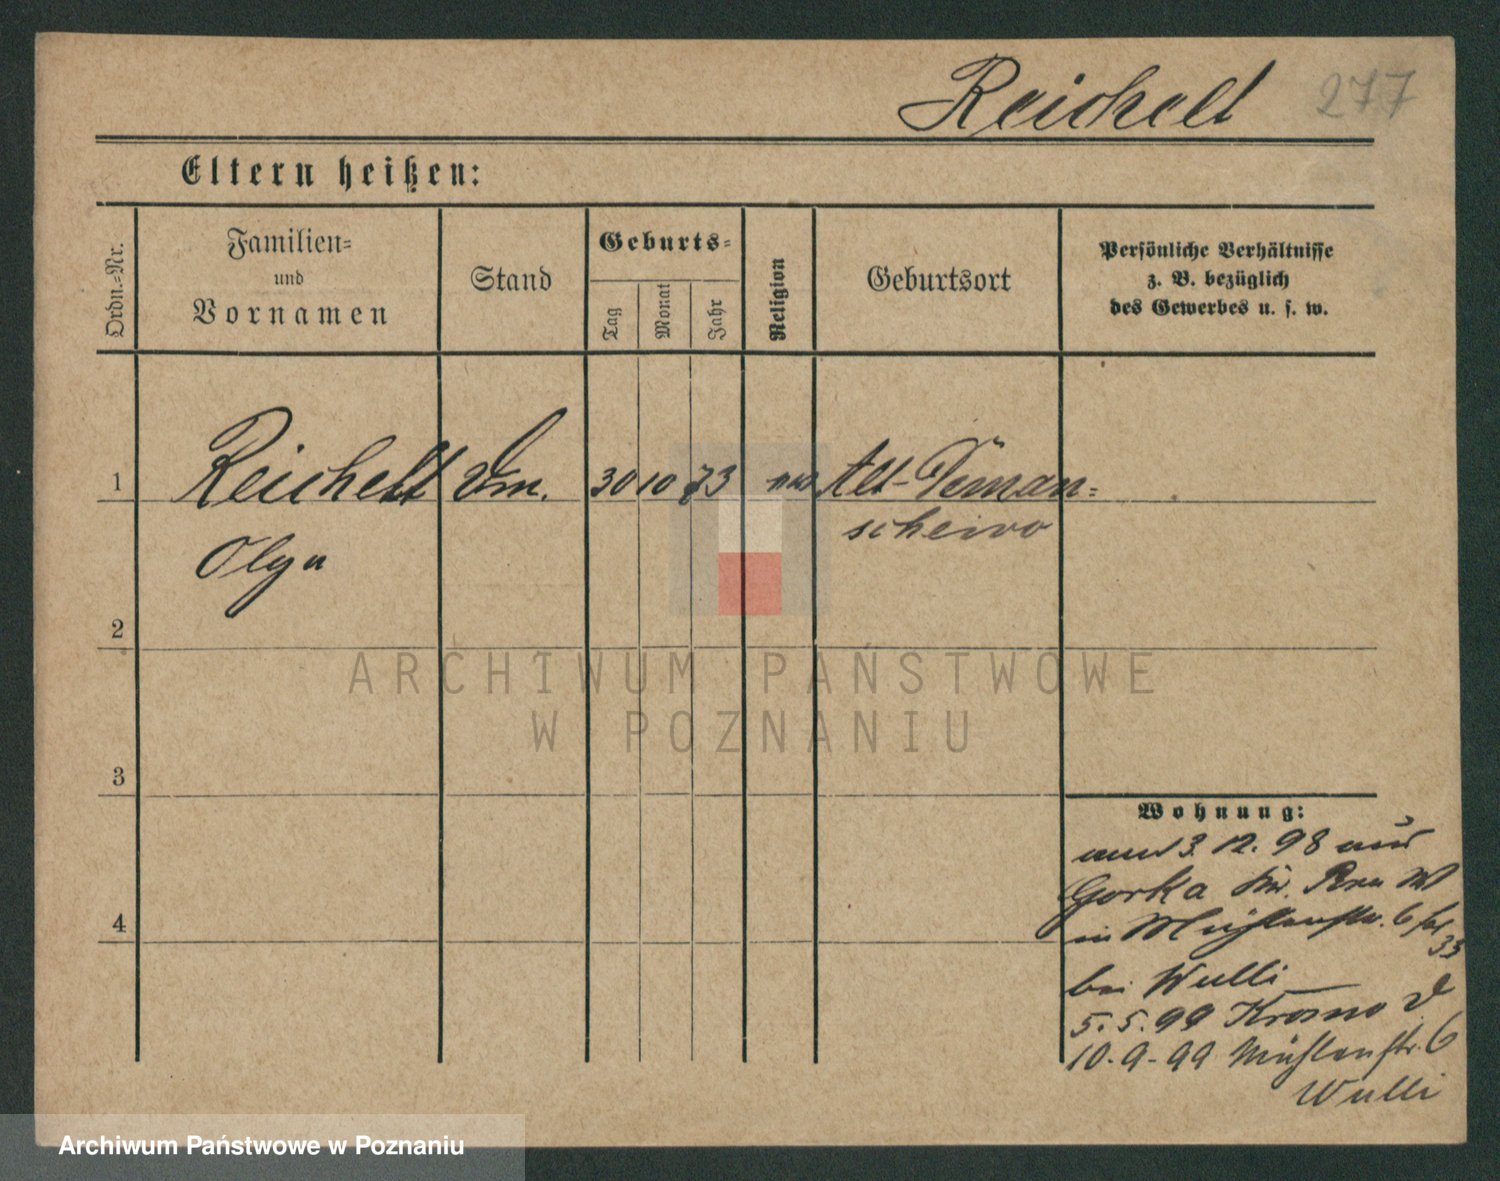 Reichelt 277
Eltern heißen:
Ordn.-Nr.
Familien-
und
Vornamen
Stand
Geburts-
Tag
Monat
Jahr
Religion
Geburtsort
Persönliche Verhältnisse
z. B. bezüglich
des Gewerbes u. s. w.
1 Reichelt 30 10 73 Alt-
Olga
2
3
4
Wohnung:
3. 12. 98
Gorka
in Mühlenstr. 6
33
bei Wulli
5. 5. 99 Krosno
10. 9. 99 Mühlenstr. 6
Wulli
ARCHIWUM PAŃSTWOWE
W POZNANIU
Archiwum Państwowe w Poznaniu